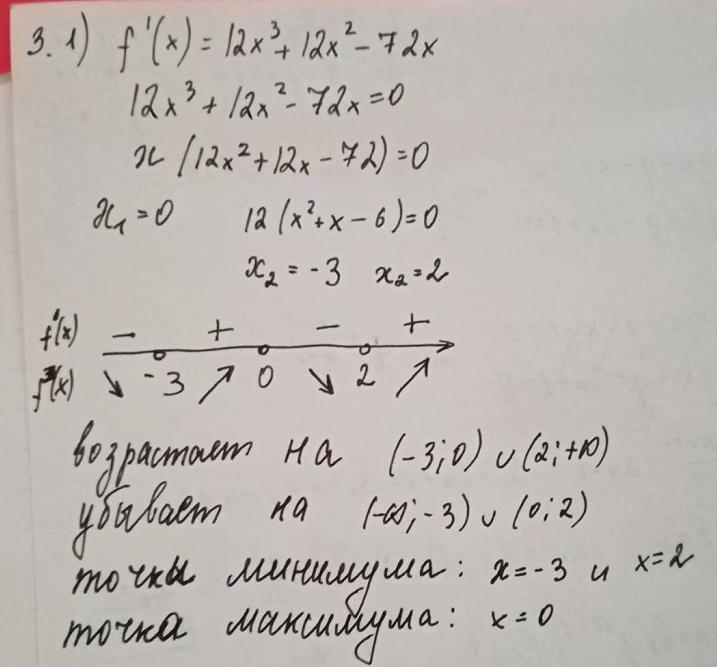 3. 1) f'(x) = 12x³ + 12x² - 72x
12x³ + 12x² - 72x = 0
x (12x² + 12x - 72) = 0
x₁ = 0 12 (x² + x - 6) = 0
x₂ = -3 x₂ = 2
f'(x) - + - +
f(x) ↘ -3 ↗ 0 ↘ 2 ↗
возрастает на (-3; 0) ∪ (2; +∞)
убывает на (-∞; -3) ∪ (0; 2)
точки минимума: x = -3 и x = 2
точка максимума: x = 0